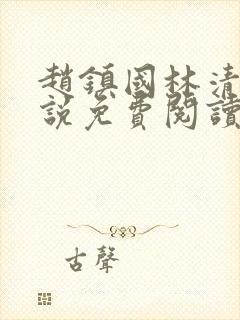 趙鎮國林清
說免費閱讀
古聲